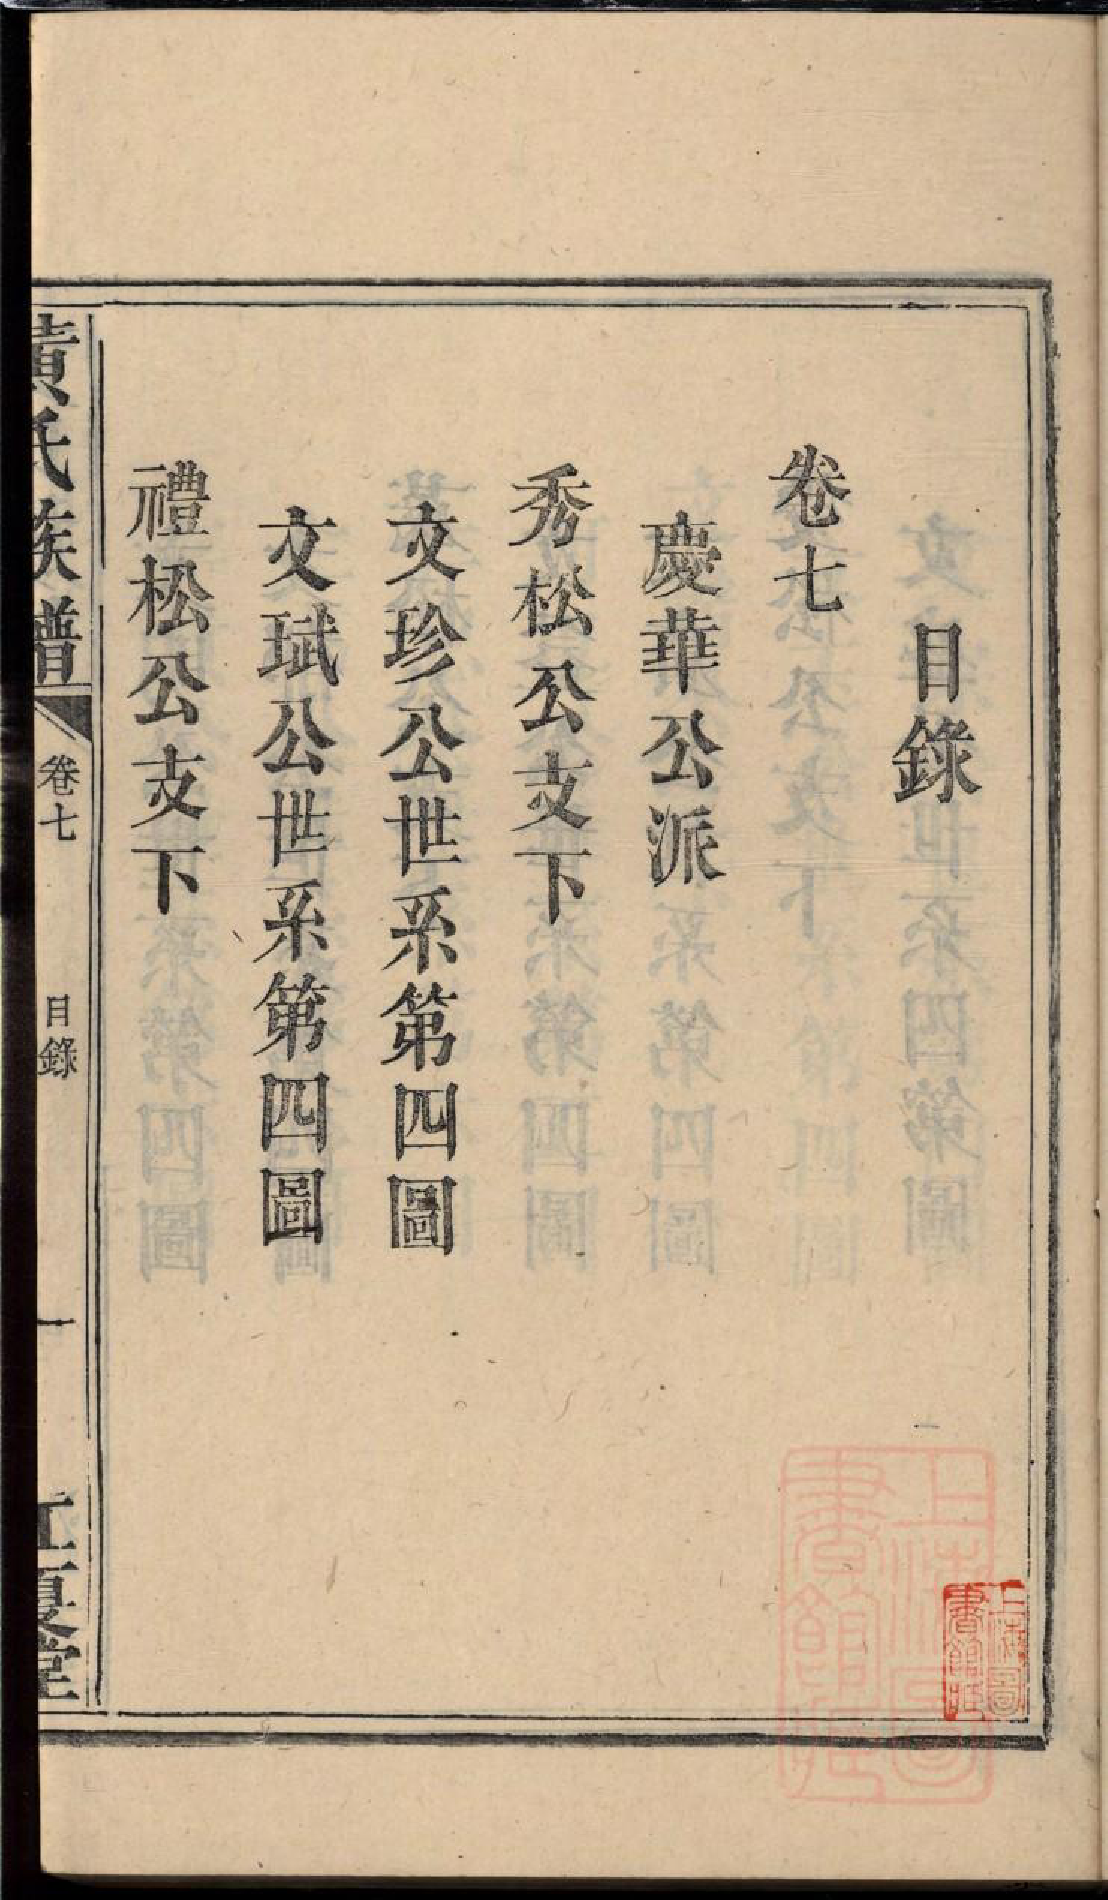 目錄
卷七
慶華公派
秀松公支下
文珍公世系第四圖
文斌公世系第四圖
禮松公支下
黃氏族譜
卷七
目錄
一
江夏堂
上海圖
書館藏